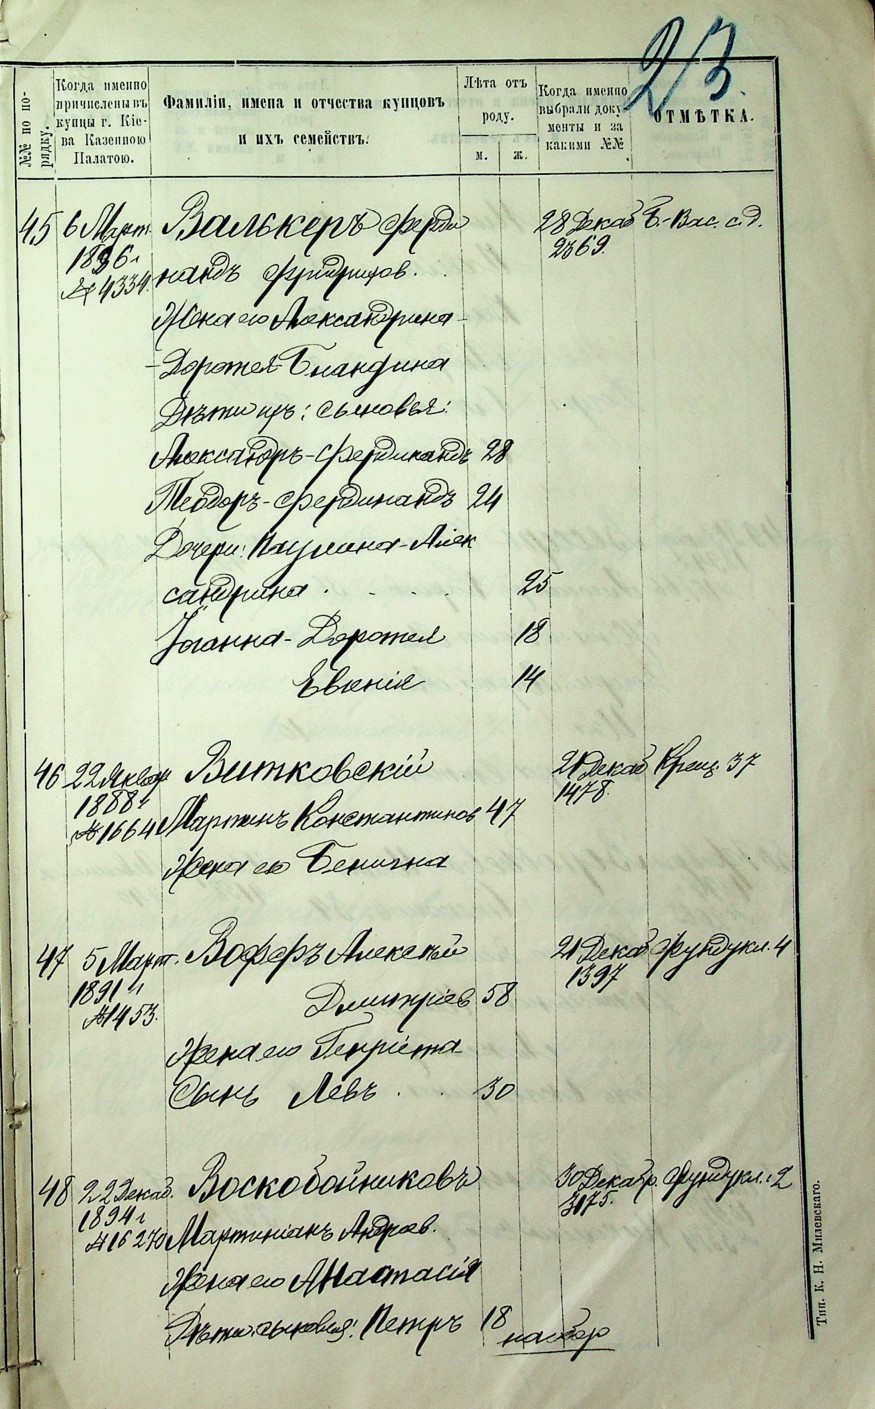 23.
№№ по по-
рядку.
Когда именно
причислены въ
купцы г. Кіе-
ва Казенною
Палатою.
Фамиліи, имена и отчества купцовъ
и ихъ семействъ.
Лѣта отъ
роду.
м.
ж.
Когда именно
выбрали доку
менты и за
какими №№
ОТМѢТКА.
45 6 Март. Валькеръ Ферди 28 Декаб Б.-Вас. с. д.
1886 г 2369.
№ 4334. нандъ Фридрихов.
Жена его Александрина-
-Доротея-Бландина
Дѣти ихъ: сыновья:
Александръ-Фердинандъ 28
Теодоръ-Фердинандъ 24
Дочери: Паулина-Алек
сандрина . . . . 25
Іоанна-Доротея 18
Евгенія 14
46 22 Январ Витковскій 21 Декаб Крещ. 37
1888 г 1478.
№ 1664 Мартинъ Константинов 47
Жена его Бенигна
47 5 Март. Воферъ Алексѣй 21 Декаб. Фундукл. 4
1891 г 1397
№ 1453. Дмитріев 58
Жена его Генріета
Сынъ Левъ . . 30
48 22 Декаб. Воскобойниковъ 30 Декабр. Фундукл. 2
1894 г 3175.
№ 16270 Мартиніанъ Андреев.
Жена его Анастасія
Дѣти: сыновья: Петръ 18
Тип. К. Н. Милевскаго.